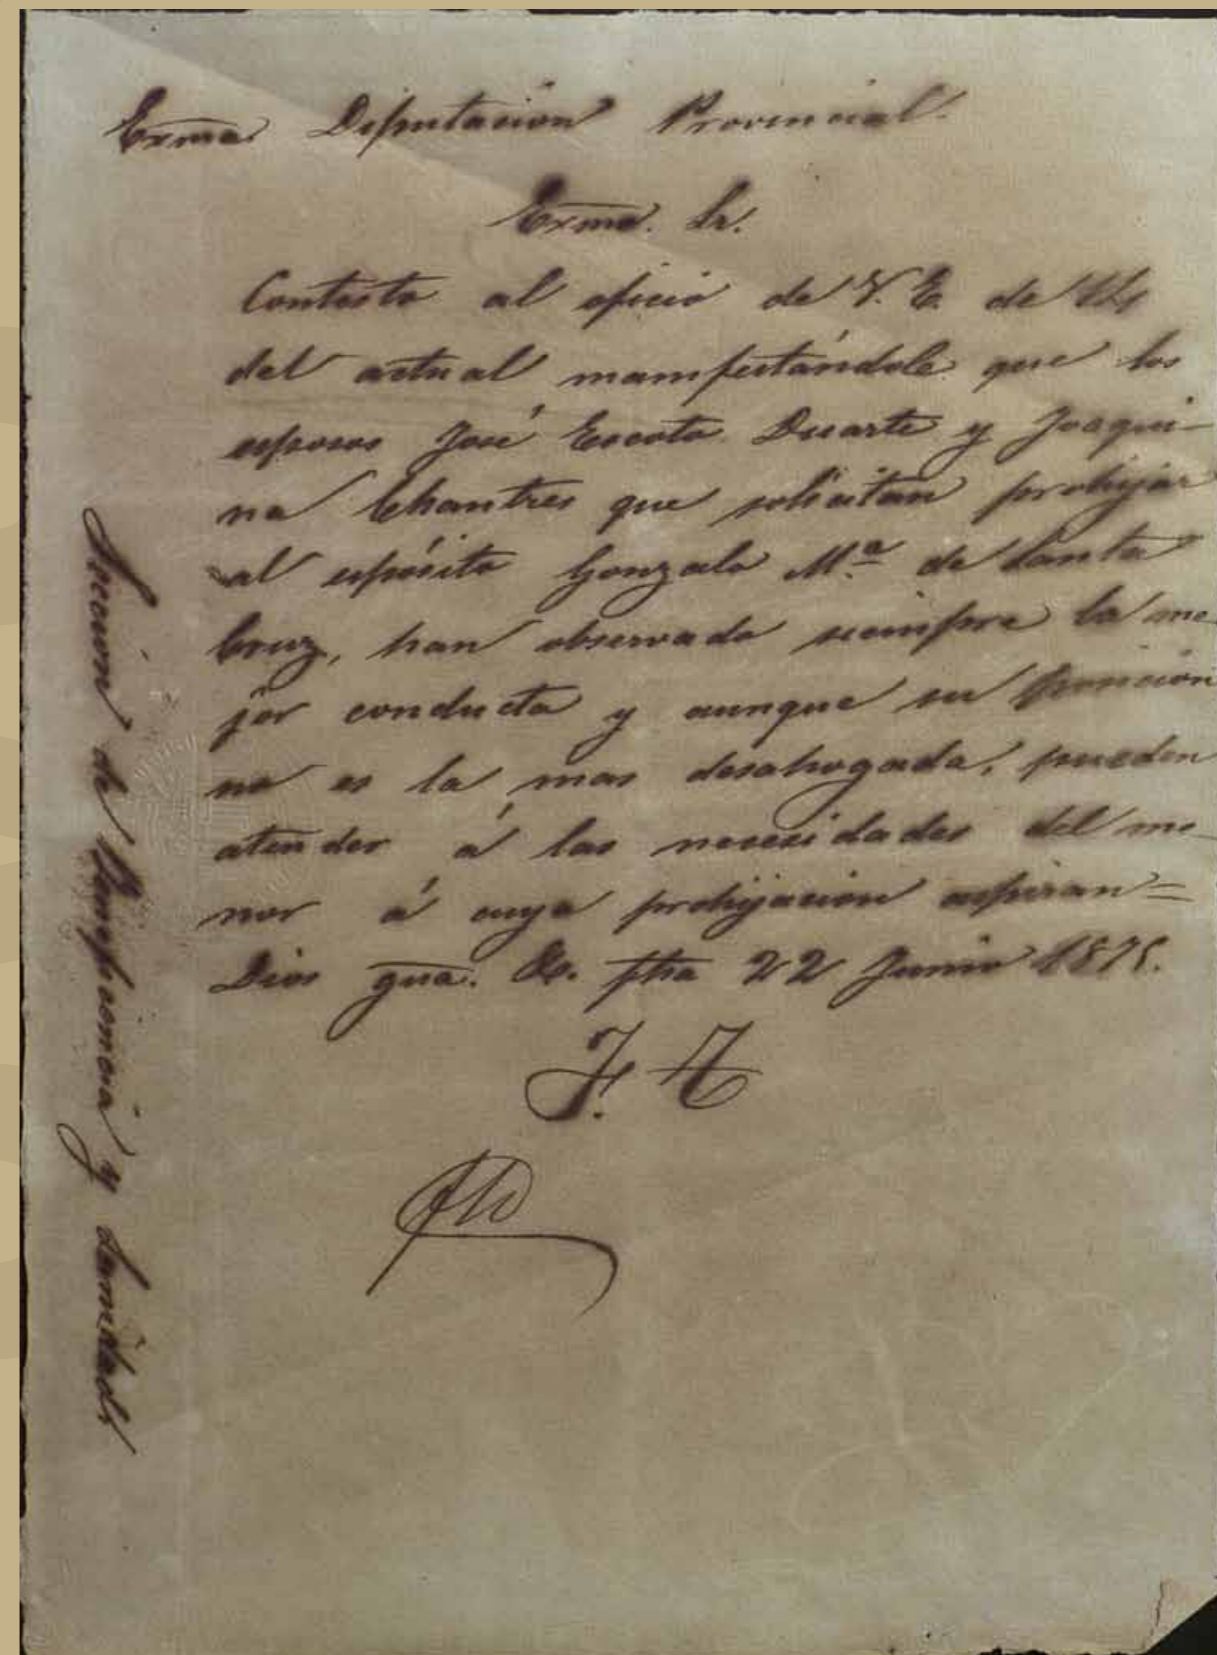 Exma. Diputación Provincial.
Exmo. Sr.
Contesto al oficio de V. E. de
del actual manifestándole que los
esposos José Escoto Duarte y Joaqui-
na Chantres que solicitan prohijar
al espósito Gonzalo Mª de Santa
Cruz, han observado siempre la me-
jor conducta y aunque su posicion
no es la mas desahogada, pueden
atender á las necesidades del me-
nor á cuya prohijacion aspiran=
Dios gue. &. fha 22 Junio
Seccion de Beneficencia y Sanidad